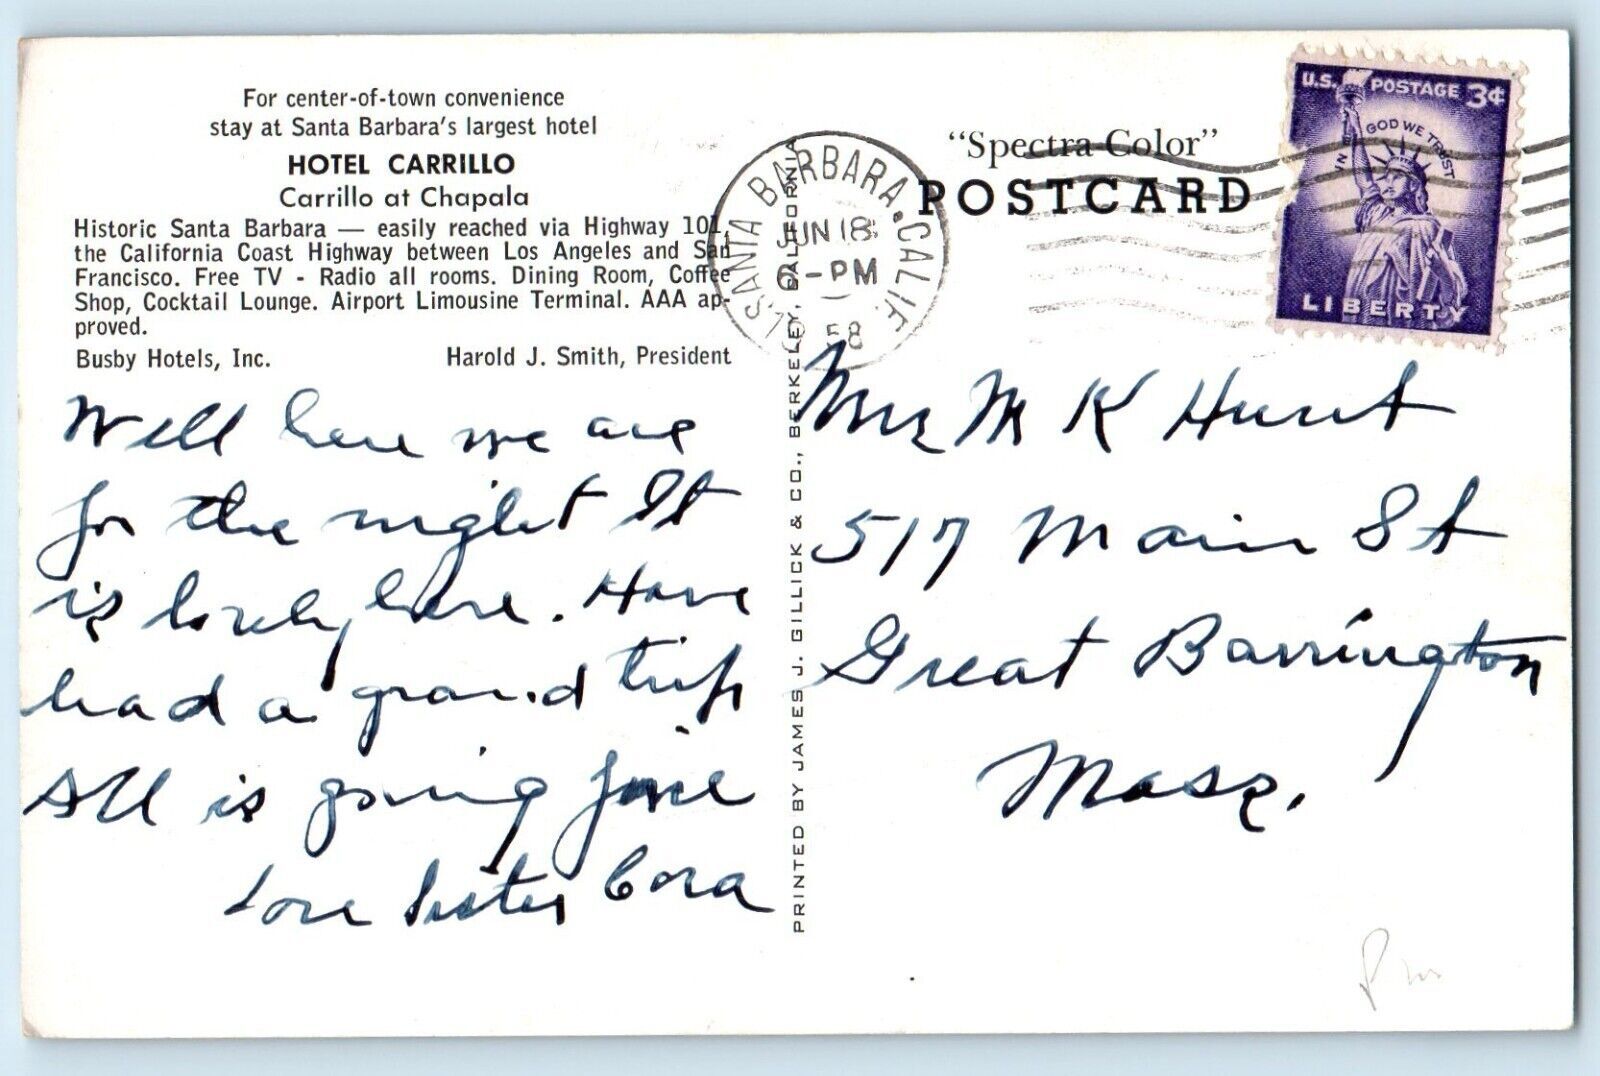 For center-of-town convenience
stay at Santa Barbara's largest hotel
HOTEL CARRILLO
Carrillo at Chapala
Historic Santa Barbara — easily reached via Highway 101,
the California Coast Highway between Los Angeles and San
Francisco. Free TV - Radio all rooms. Dining Room, Coffee
Shop, Cocktail Lounge. Airport Limousine Terminal. AAA ap-
proved.
Busby Hotels, Inc. Harold J. Smith, President
Well here we are
for the night It
is lovely here. Have
had a grand trip
All is going fine
Love Sister Cora
PRINTED BY JAMES J. GILLICK & CO., BERKELEY, CALIFORNIA
SANTA BARBARA. CALIF.
JUN 18
6-PM
58
"Spectra-Color"
POSTCARD
U.S. POSTAGE 3¢
IN GOD WE TRUST
LIBERTY
M K Hunt
517 Main St
Great Barrington
Mass.